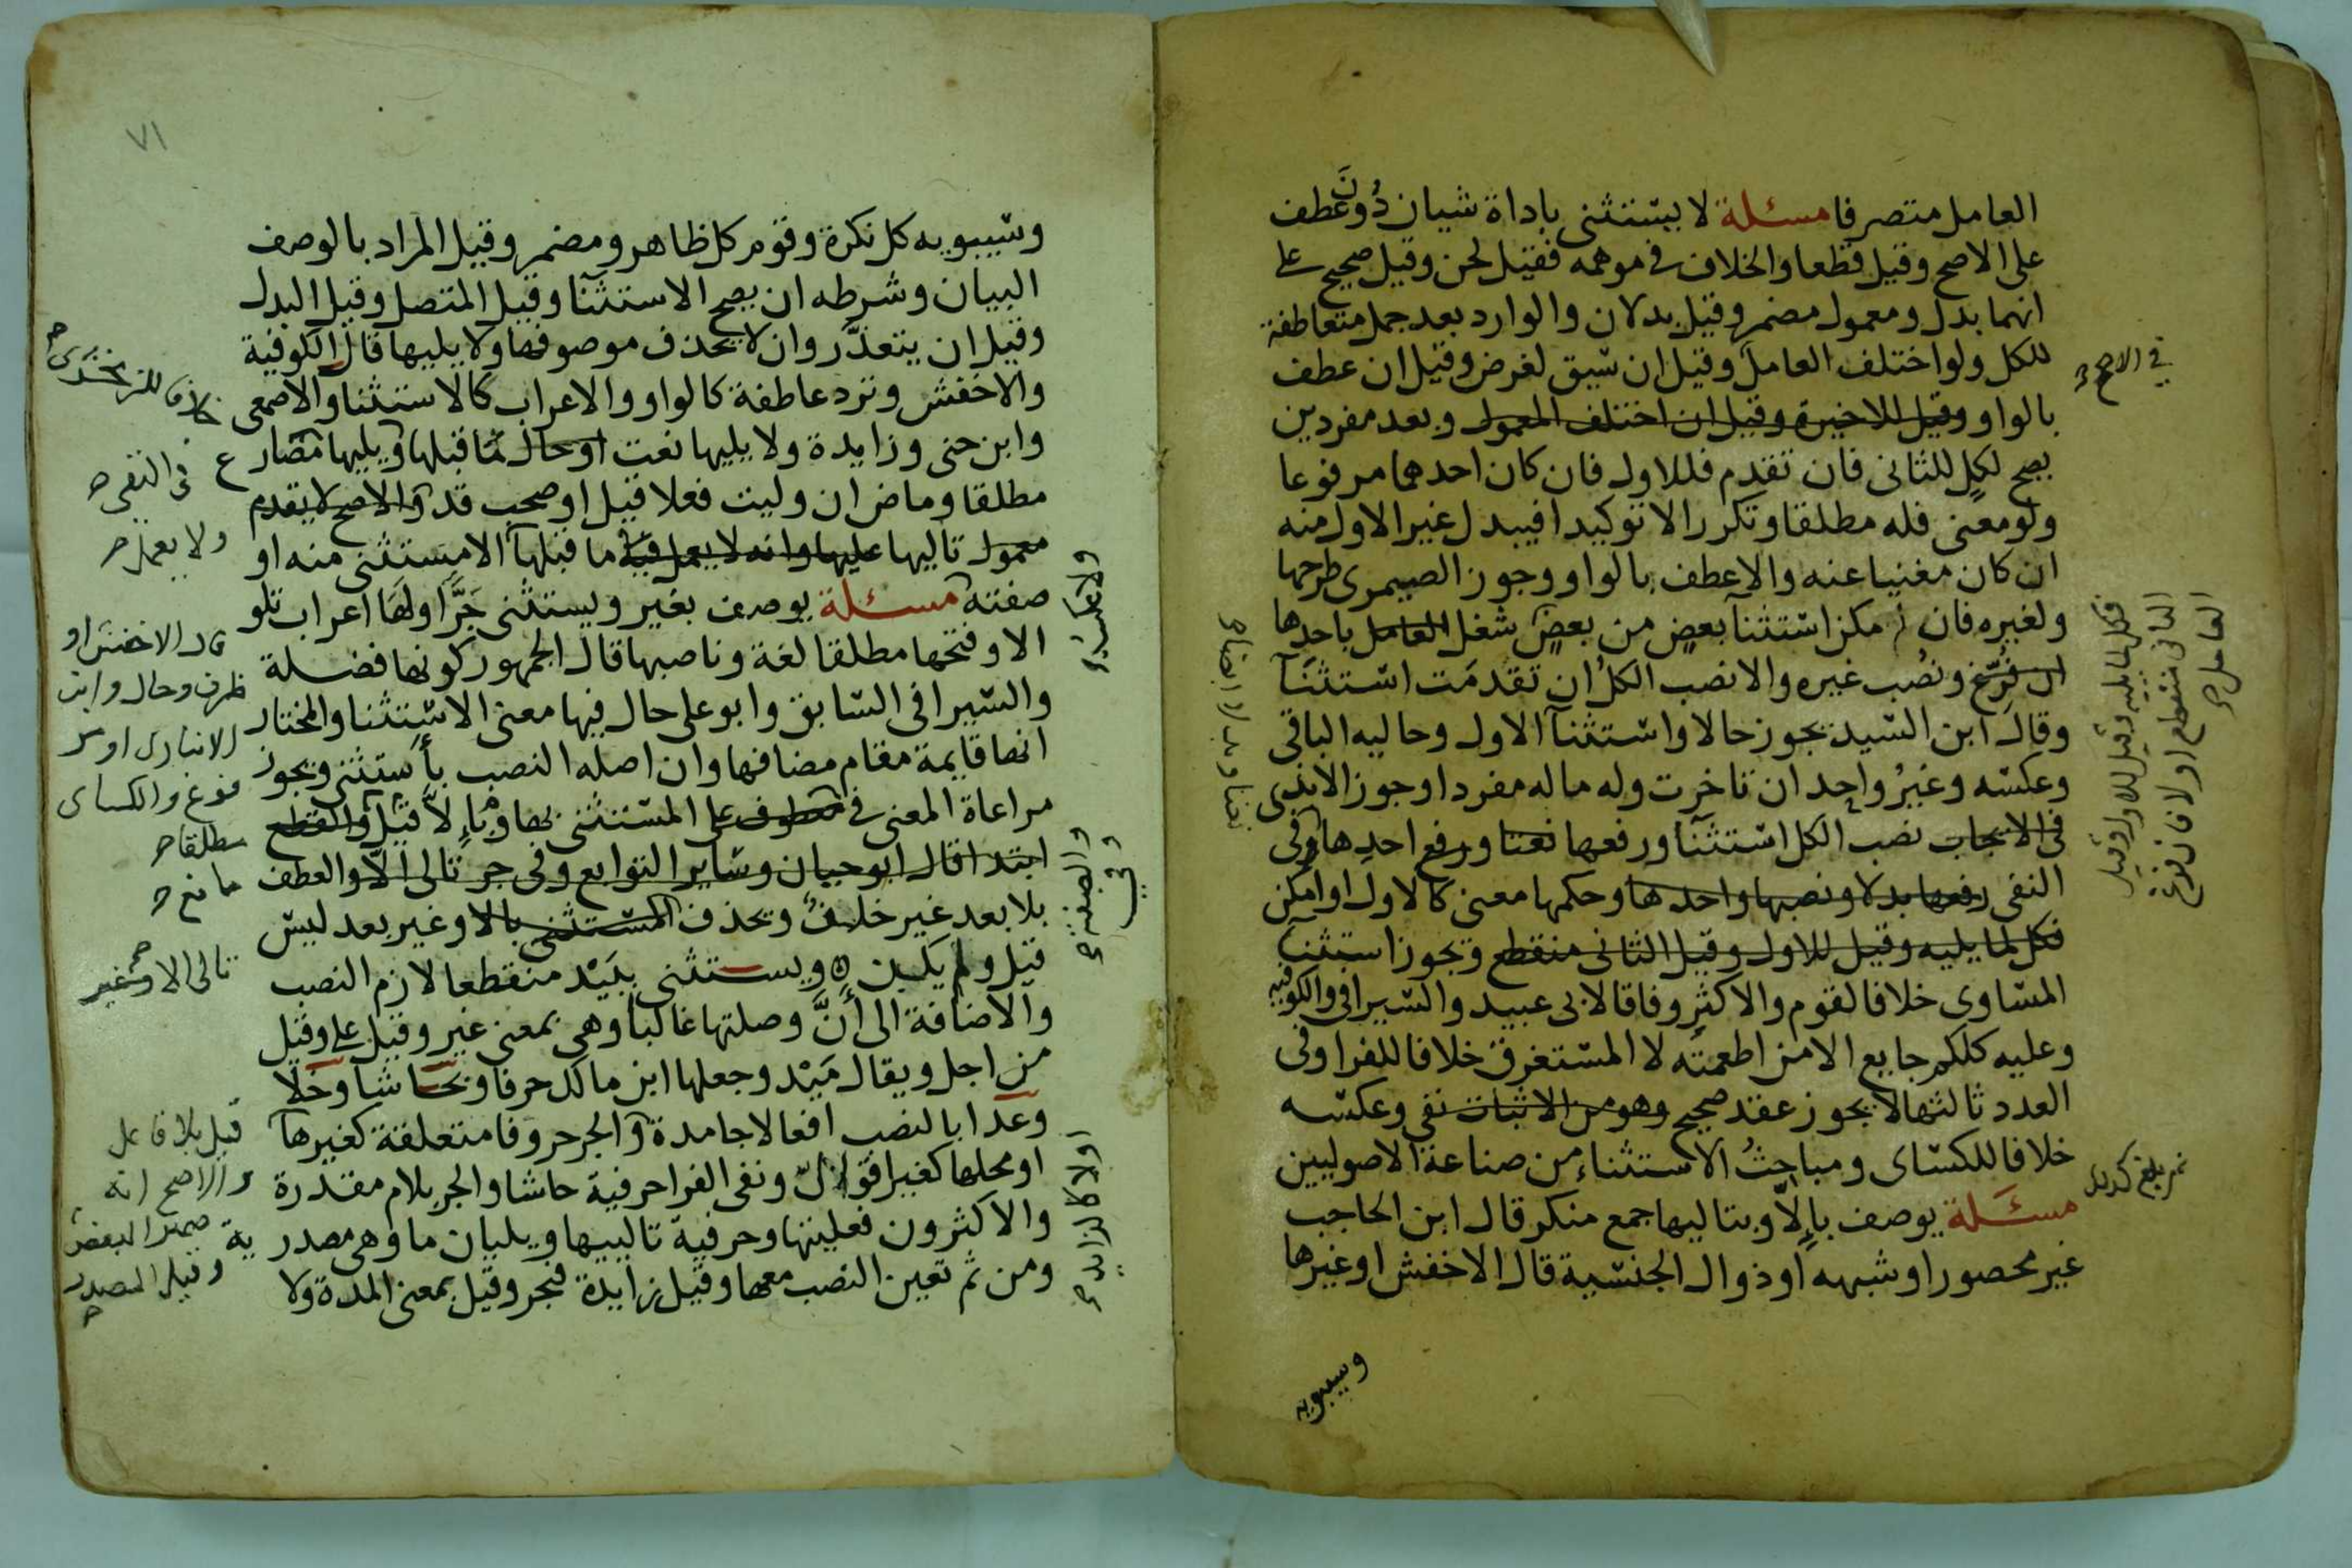 العامل متصرفا مسئلة لا يستثنى باداة شيان دُونَ عطف
على الاصح وقيل قطعا والخلاف في موهمه فقيل لحن وقيل صحيح على
انهما بدل ومعمول مضمر وقيل بدلان والوارد بعد جمل متعاطفة
للكل ولو اختلف العامل وقيل ان سيق لغرض وقيل ان عطف
في الاصح
بالواو وقيل للاخيرة وقيل ان اختلف المعمول وبعد مفردين
يصح لكل للثانى فان تقدم فللاول فان كان احدهما مرفوعا
ولو معنى فله مطلقا وتكرر الا توكيدا فيبدل غير الاول منه
ان كان مغنيا عنه والا عطف بالواو وجوز الصيمرى طرحها
ولغيره فان امكن استثنآ بعضٍ من بعضٍ شغل العامل باحدها
ان فُرّغ ونُصب غيره والا نصب الكلُ ان تقدمَت استثنَآ
وقال ابن السّيد يجوز حالا واستثنآ الاول وحاليه الباقى
وعكسه وغيرُ واحِد ان تاخرت وله ماله مفردا وجوز الابذى
فى الايجاب نصب الكل استثنآ ورفعها نعتا ورفع احدِها وفى
النفى رفعها بدلا ونصبها واحدها وحكمها معنى كالاول او امكن
فكل لما يليه وقيل للاول وقيل الثانى منقطع ويجوز استثنآ
المساوى خلافا لقوم والاكثر وفاقا لابى عبيد والسيرافى والكوفيه
وعليه كلكم جايع الا من اطعمته لا المستغرق خلافا للفرا وفى
العدد ثالثها لا يجوز عقد صحيح وهو من الاثبات نفى وعكسه
خلافا للكساى ومباحثُ الاستثناء من صناعة الاصوليين
مسئلة يوصف بإِلاّ وبتاليها جمع منكر قال ابن الحاجب
غير محصور او شبهه او ذو ال الجنسية قال الاخفش او غيرها
وسيبويه
فكل لما يليه وقيل للاول وقيل
الثانى منقطع اولا فان فرغ
العامل
٧١
وسيبويه كل نكرة وقوم كل ظاهر ومضمر وقيل المراد بالوصف
البيان وشرطه ان يصح الاستثنآ وقيل المتصل وقيل البدل
وقيل ان يتعذّر وان لا يحذف موصوفها ولا يليها قال الكوفية
خلافا للزمخشرى
والاخفش وترد عاطفة كالواو والاعراب كالاستثنا والاصمعى
وابن جنى وزايدة ولا يليها نعت او حال لما قبلها ويليها مضارع
فى النفى
مطلقا وماض ان وليت فعلا قيل او صحب قد والاصح لا يقدم
ولا يعمل
معمول تاليها عليها وانه لا يعمل فيه ما قبلها الا مستثنى منه او
صفته مسئلة يوصف بغير ويستثنى جَرًّا ولهَا اعراب تلو
الا وفتحها مطلقا لغة وناصبها قال الجمهور كونها فضلة
والسّيرافى السّابق وابو على حال فيها معنى الاستثنا والمختار
انها قايمة مقام مضافها وان اصله النصب بأستثنى ويجوز
مراعاة المعنى فى معطوف على المستثنى بها وبإِلاَّ قيل والقطع
ابتدا قال ابو حيان وساير التوابع وفى جر تالى الّا والعطف
بلا بعد غير خلف ويحذف المستثنى بالا وغير بعد ليس
قيل ولم يكن ويستثنى ببَيْد منقطعا لازم النصب
والاضافة الى أنَّ وصلتها غالباً وهى بمعنى غير وقيل على وقيل
من اجل ويقال مَيْد وجعلها ابن مالك حرفا وبحاشا وخلا
وعدا بالنصب افعالا جامدة والجر حروفا متعلقة كغيرها
او محلها كغير اقوال ونفى الفرا حرفية حاشا والجر بلام مقدرة
والاكثرون فعليتها وحرفية تالييها ويليان ما وهى مصدرية
ومن ثم تعين النصب معها وقيل زايدة فيجر وقيل بمعنى المدة ولا
قال الاخفش او
ظرف وحال وابن
الانبارى او مر
فوع والكساى
مطلقا
ما نع
تالى الا وغير
قيل بلا فاعل
والاصح انه
ضمير البعض
وقيل المصدر